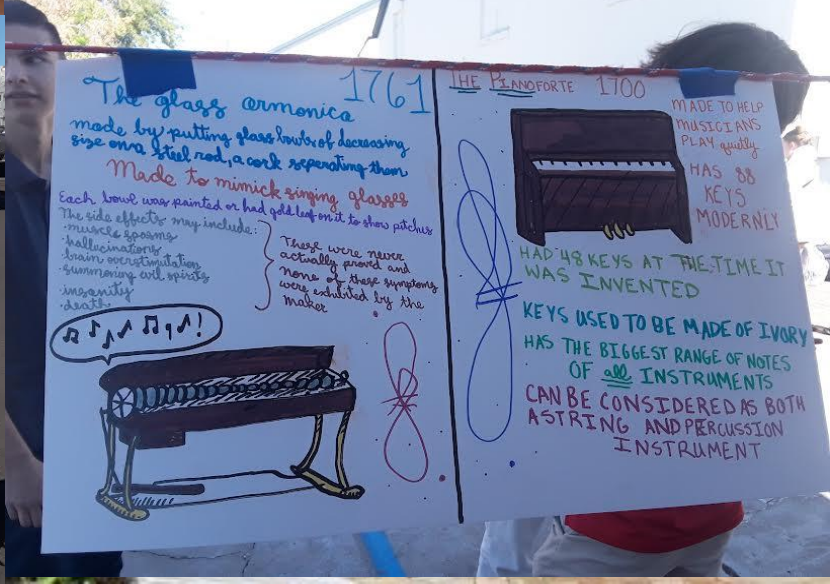 The glass armonica 1761
made by putting glass bowls of decreasing
size on a steel rod, a cork seperating them
Made to mimick singing glasses
Each bowl was painted or had gold leaf on it to show pitches
The side effects may include:
·muscle spasms
·hallucinations
·brain overstimulation
·summoning evil spirits
·insanity
·death
These were never
actually proved and
none of these symptoms
were exhibited by the
maker
THE PIANOFORTE 1700
MADE TO HELP
MUSICIANS
PLAY quietly
HAS 88
KEYS
MODERNLY
HAD 48 KEYS AT THE TIME IT
WAS INVENTED
KEYS USED TO BE MADE OF IVORY
HAS THE BIGGEST RANGE OF NOTES
OF all INSTRUMENTS
CAN BE CONSIDERED AS BOTH
A STRING AND PERCUSSION
INSTRUMENT